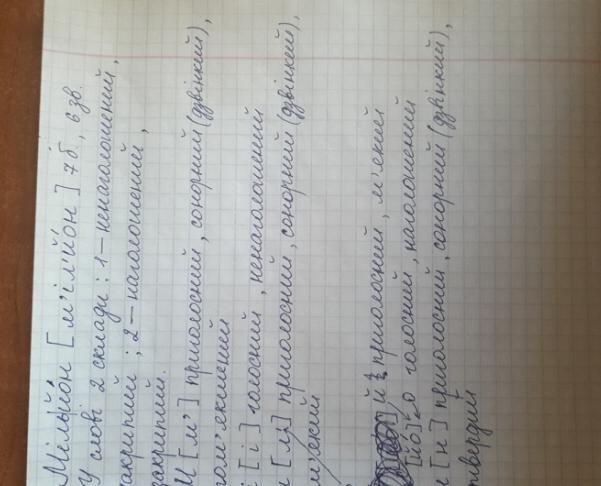 Мільйон [м'іл'йо́н] 7б, 6 зв.
У слові 2 склади: 1 – ненаголошений,
закритий; 2 – наголошений,
закритий.
М [м'] приголосний, сонорний (дзвінкий),
пом'якшений
і [і] голосний, ненаголошений
приголосний, сонорний (дзвінкий),
м'який
й приголосний, м'який
[йо] о голосний, наголошений
н [н] приголосний, сонорний (дзвінкий),
твердий